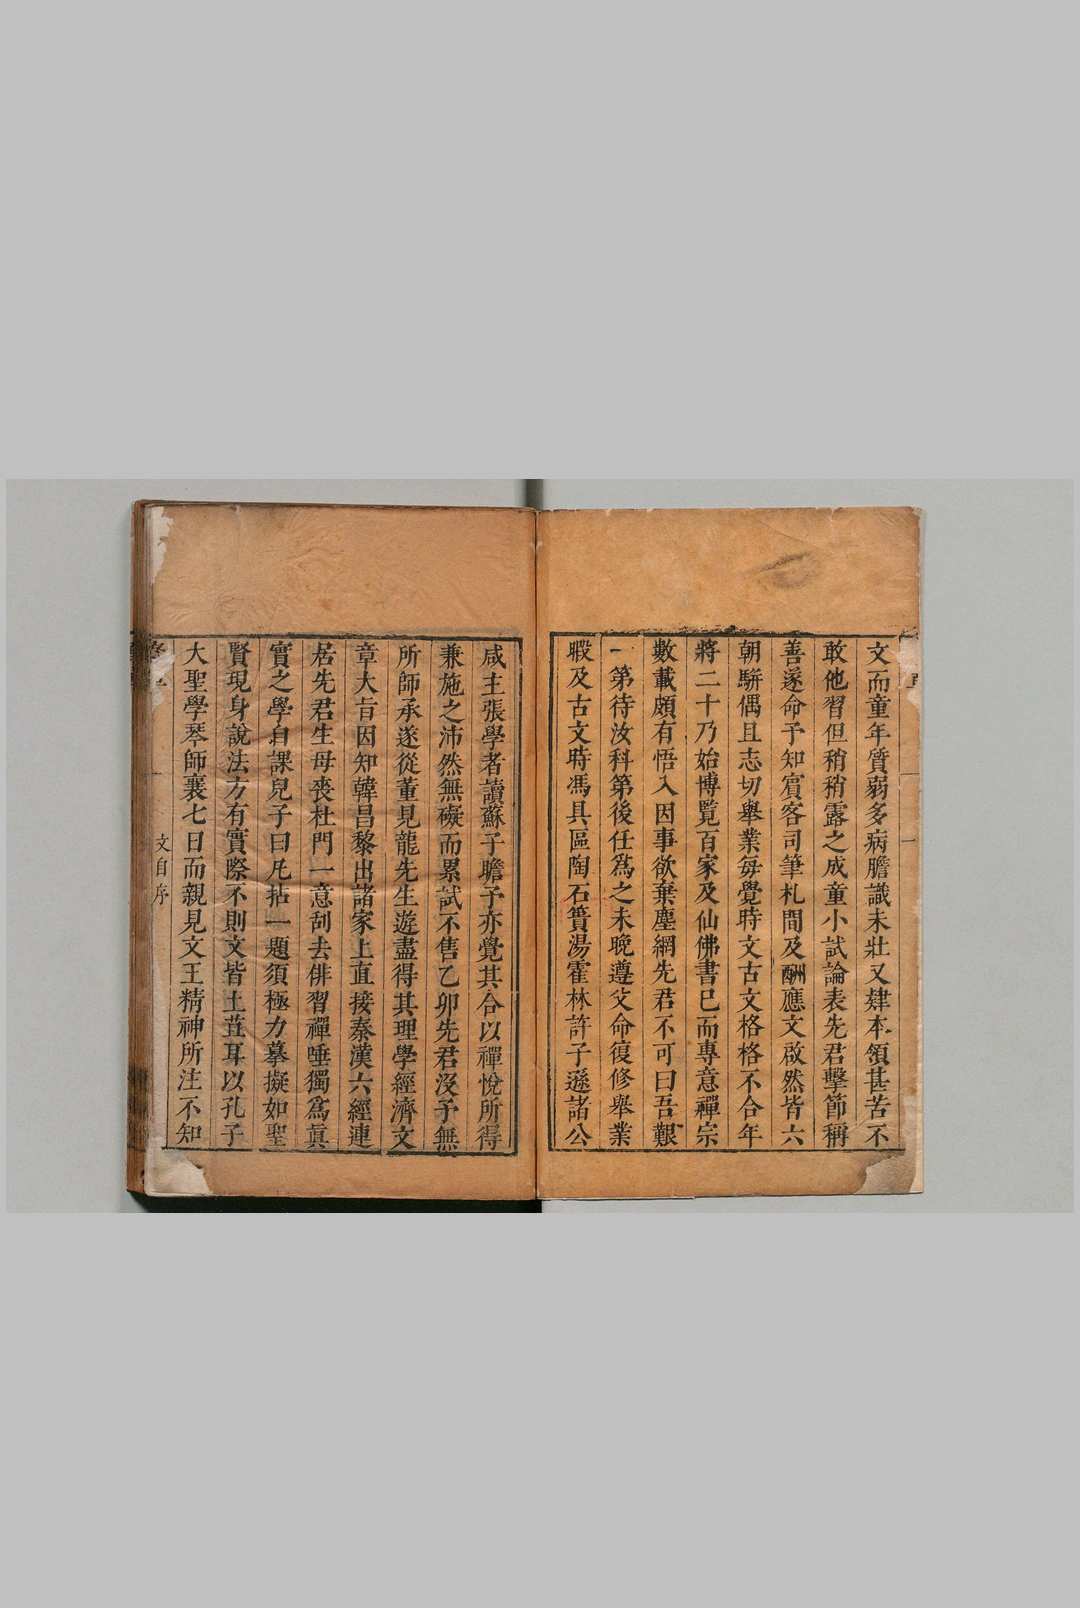 文而童年質弱多病膽識未壯又肄本領甚苦不
敢他習但稍稍露之成童小試論表先君擊節稱
善遂命予知賓客司筆札間及酬應文啟然皆六
朝駢偶且志切舉業每覺時文古文格格不合年
將二十乃始博覽百家及仙佛書已而專意禪宗
數載頗有悟入因事欲棄塵網先君不可曰吾艱
一第待汝科第後任爲之未晚遵父命復修舉業
暇及古文時馮具區陶石簣湯霍林許子遜諸公
咸主張學者讀蘇子瞻予亦覺其合以禪悅所得
兼施之沛然無礙而累試不售乙卯先君沒予無
所師承遂從董見龍先生遊盡得其理學經濟文
章大旨因知韓昌黎出諸家上直接秦漢六經連
居先君生母喪杜門一意刮去俳習禪唾獨爲眞
實之學自課兒子曰凡拈一題須極力摹擬如聖
賢現身說法方有實際不則文皆土苴耳以孔子
大聖學琴師襄七日而親見文王精神所注不知
文自序